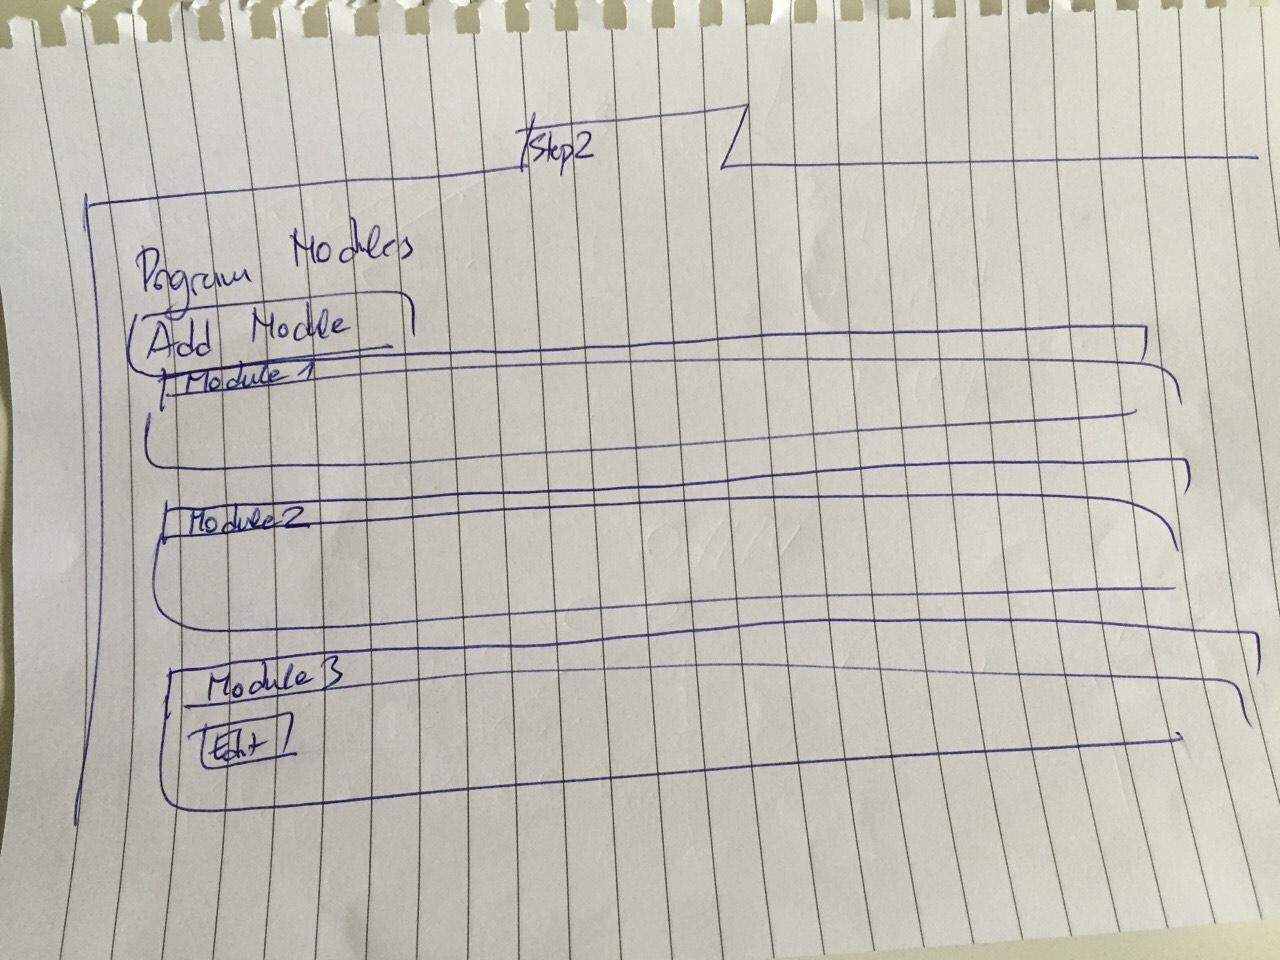 Step2
Program Modules
Add Modle
Module 1
Module 2
Module 3
Edit